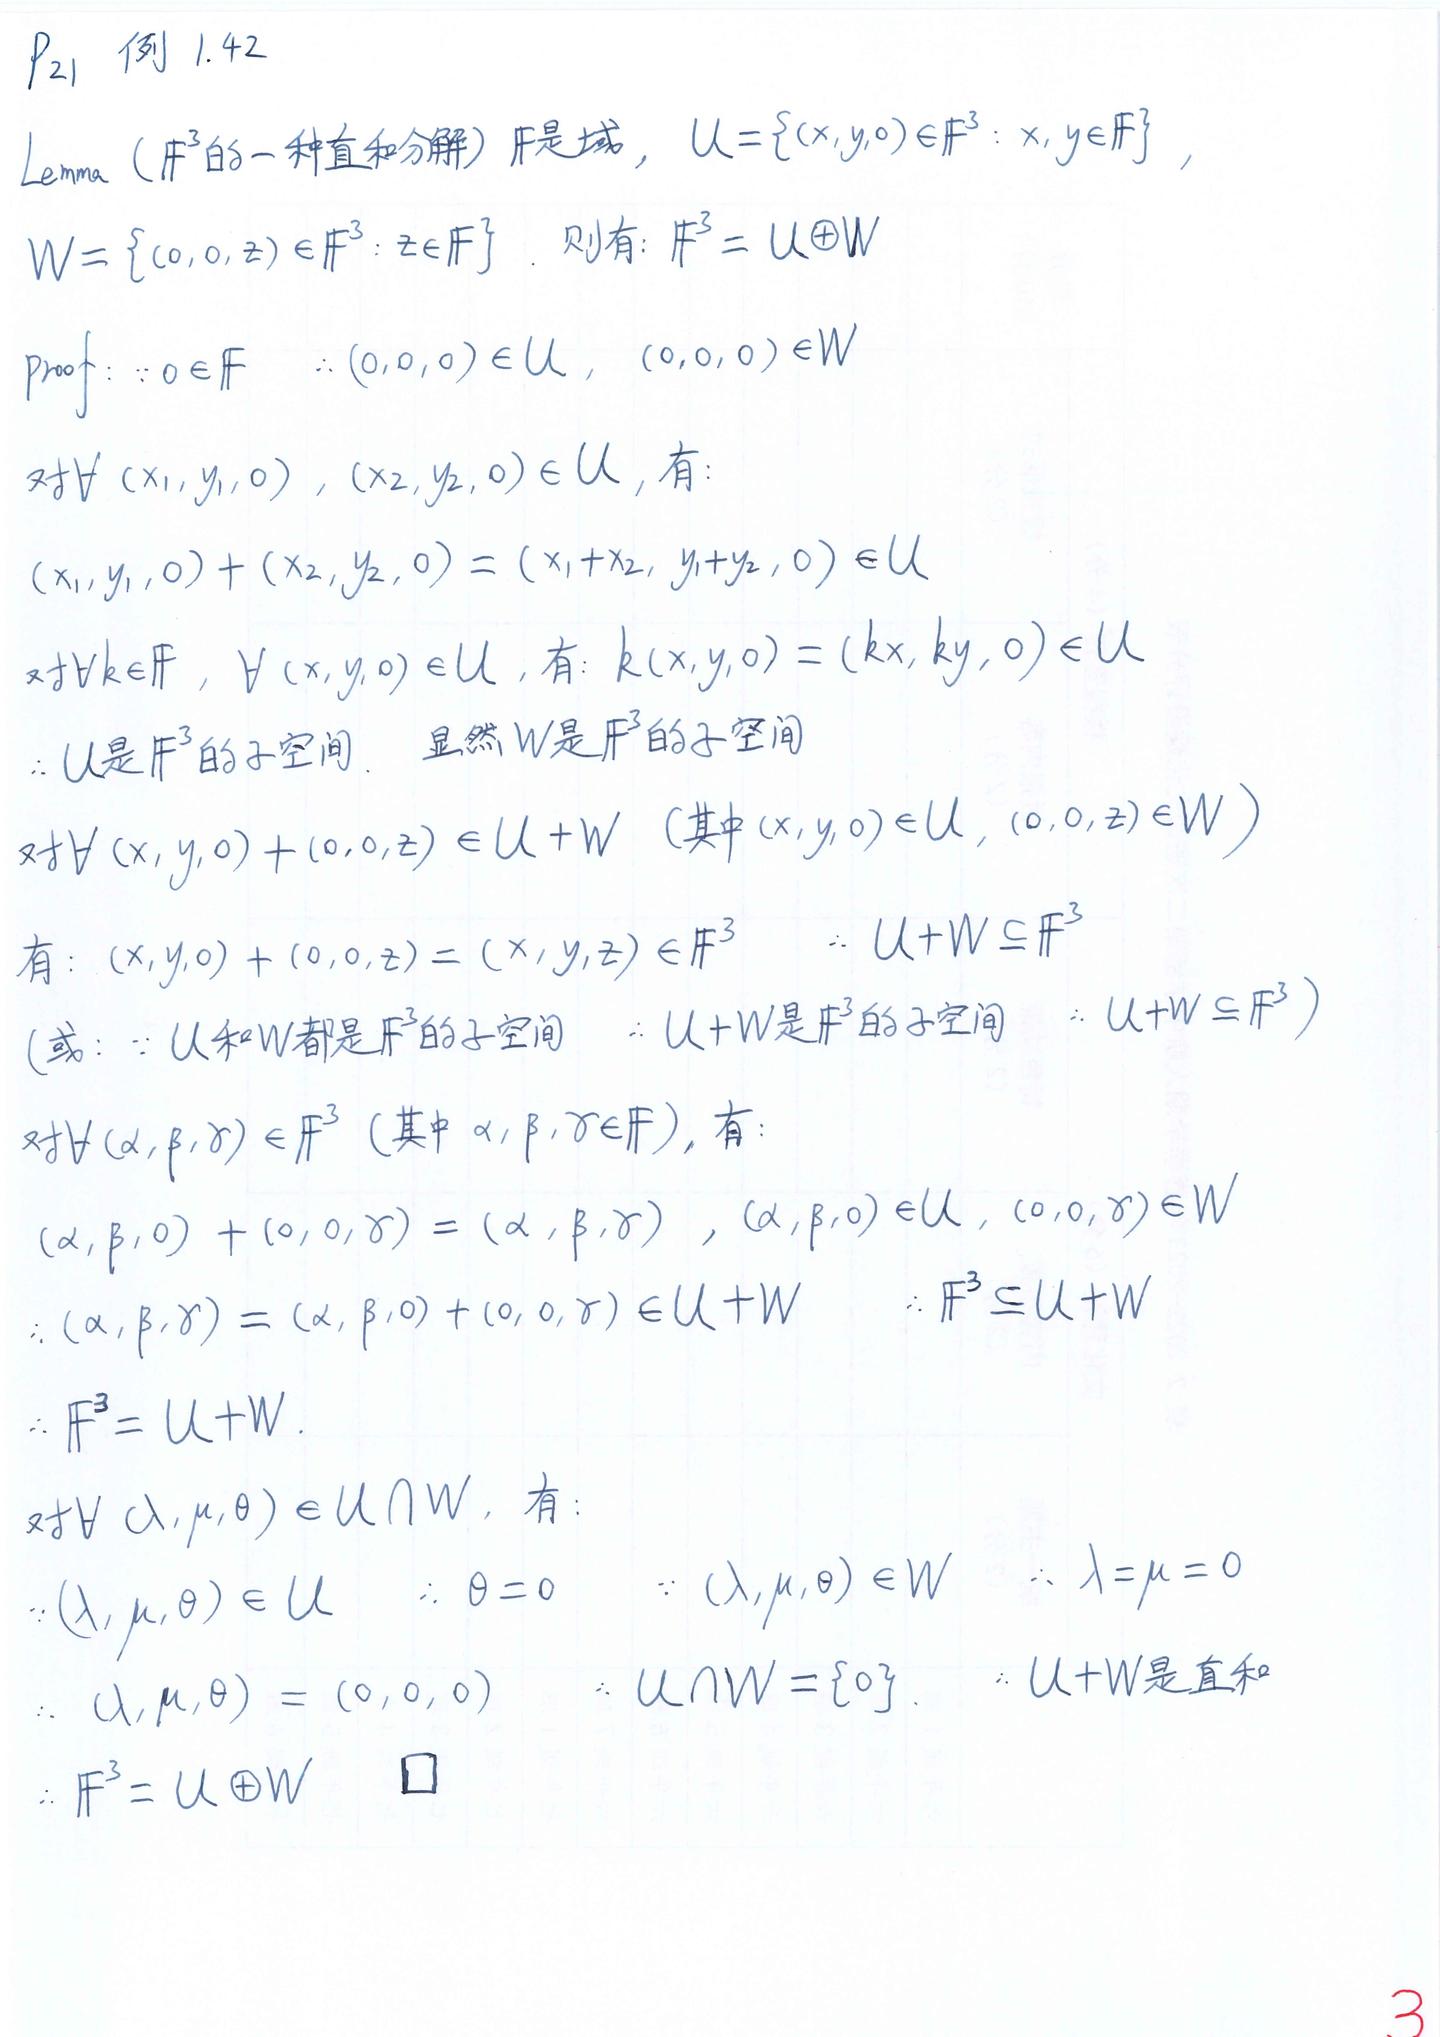 P21 例 1.42
Lemma (𝔽³的一种直和分解) 𝔽是域, U={(x,y,0)∈𝔽³: x,y∈𝔽},
W={(0,0,z)∈𝔽³: z∈𝔽}. 则有: 𝔽³=U⊕W
proof: ∵0∈𝔽 ∴(0,0,0)∈U, (0,0,0)∈W
对∀(x₁,y₁,0), (x₂,y₂,0)∈U, 有:
(x₁,y₁,0)+(x₂,y₂,0)=(x₁+x₂, y₁+y₂, 0)∈U
对∀k∈𝔽, ∀(x,y,0)∈U, 有: k(x,y,0)=(kx,ky,0)∈U
∴U是𝔽³的子空间. 显然W是𝔽³的子空间
对∀(x,y,0)+(0,0,z)∈U+W (其中(x,y,0)∈U, (0,0,z)∈W)
有: (x,y,0)+(0,0,z)=(x,y,z)∈𝔽³ ∴U+W⊆𝔽³
(或: ∵U和W都是𝔽³的子空间 ∴U+W是𝔽³的子空间 ∴U+W⊆𝔽³)
对∀(α,β,γ)∈𝔽³ (其中 α,β,γ∈𝔽), 有:
(α,β,0)+(0,0,γ)=(α,β,γ), (α,β,0)∈U, (0,0,γ)∈W
∴(α,β,γ)=(α,β,0)+(0,0,γ)∈U+W ∴𝔽³⊆U+W
∴𝔽³=U+W.
对∀(λ,μ,θ)∈U∩W, 有:
∵(λ,μ,θ)∈U ∴θ=0 ∵(λ,μ,θ)∈W ∴λ=μ=0
∴(λ,μ,θ)=(0,0,0) ∴U∩W={0}. ∴U+W是直和
∴𝔽³=U⊕W □
3